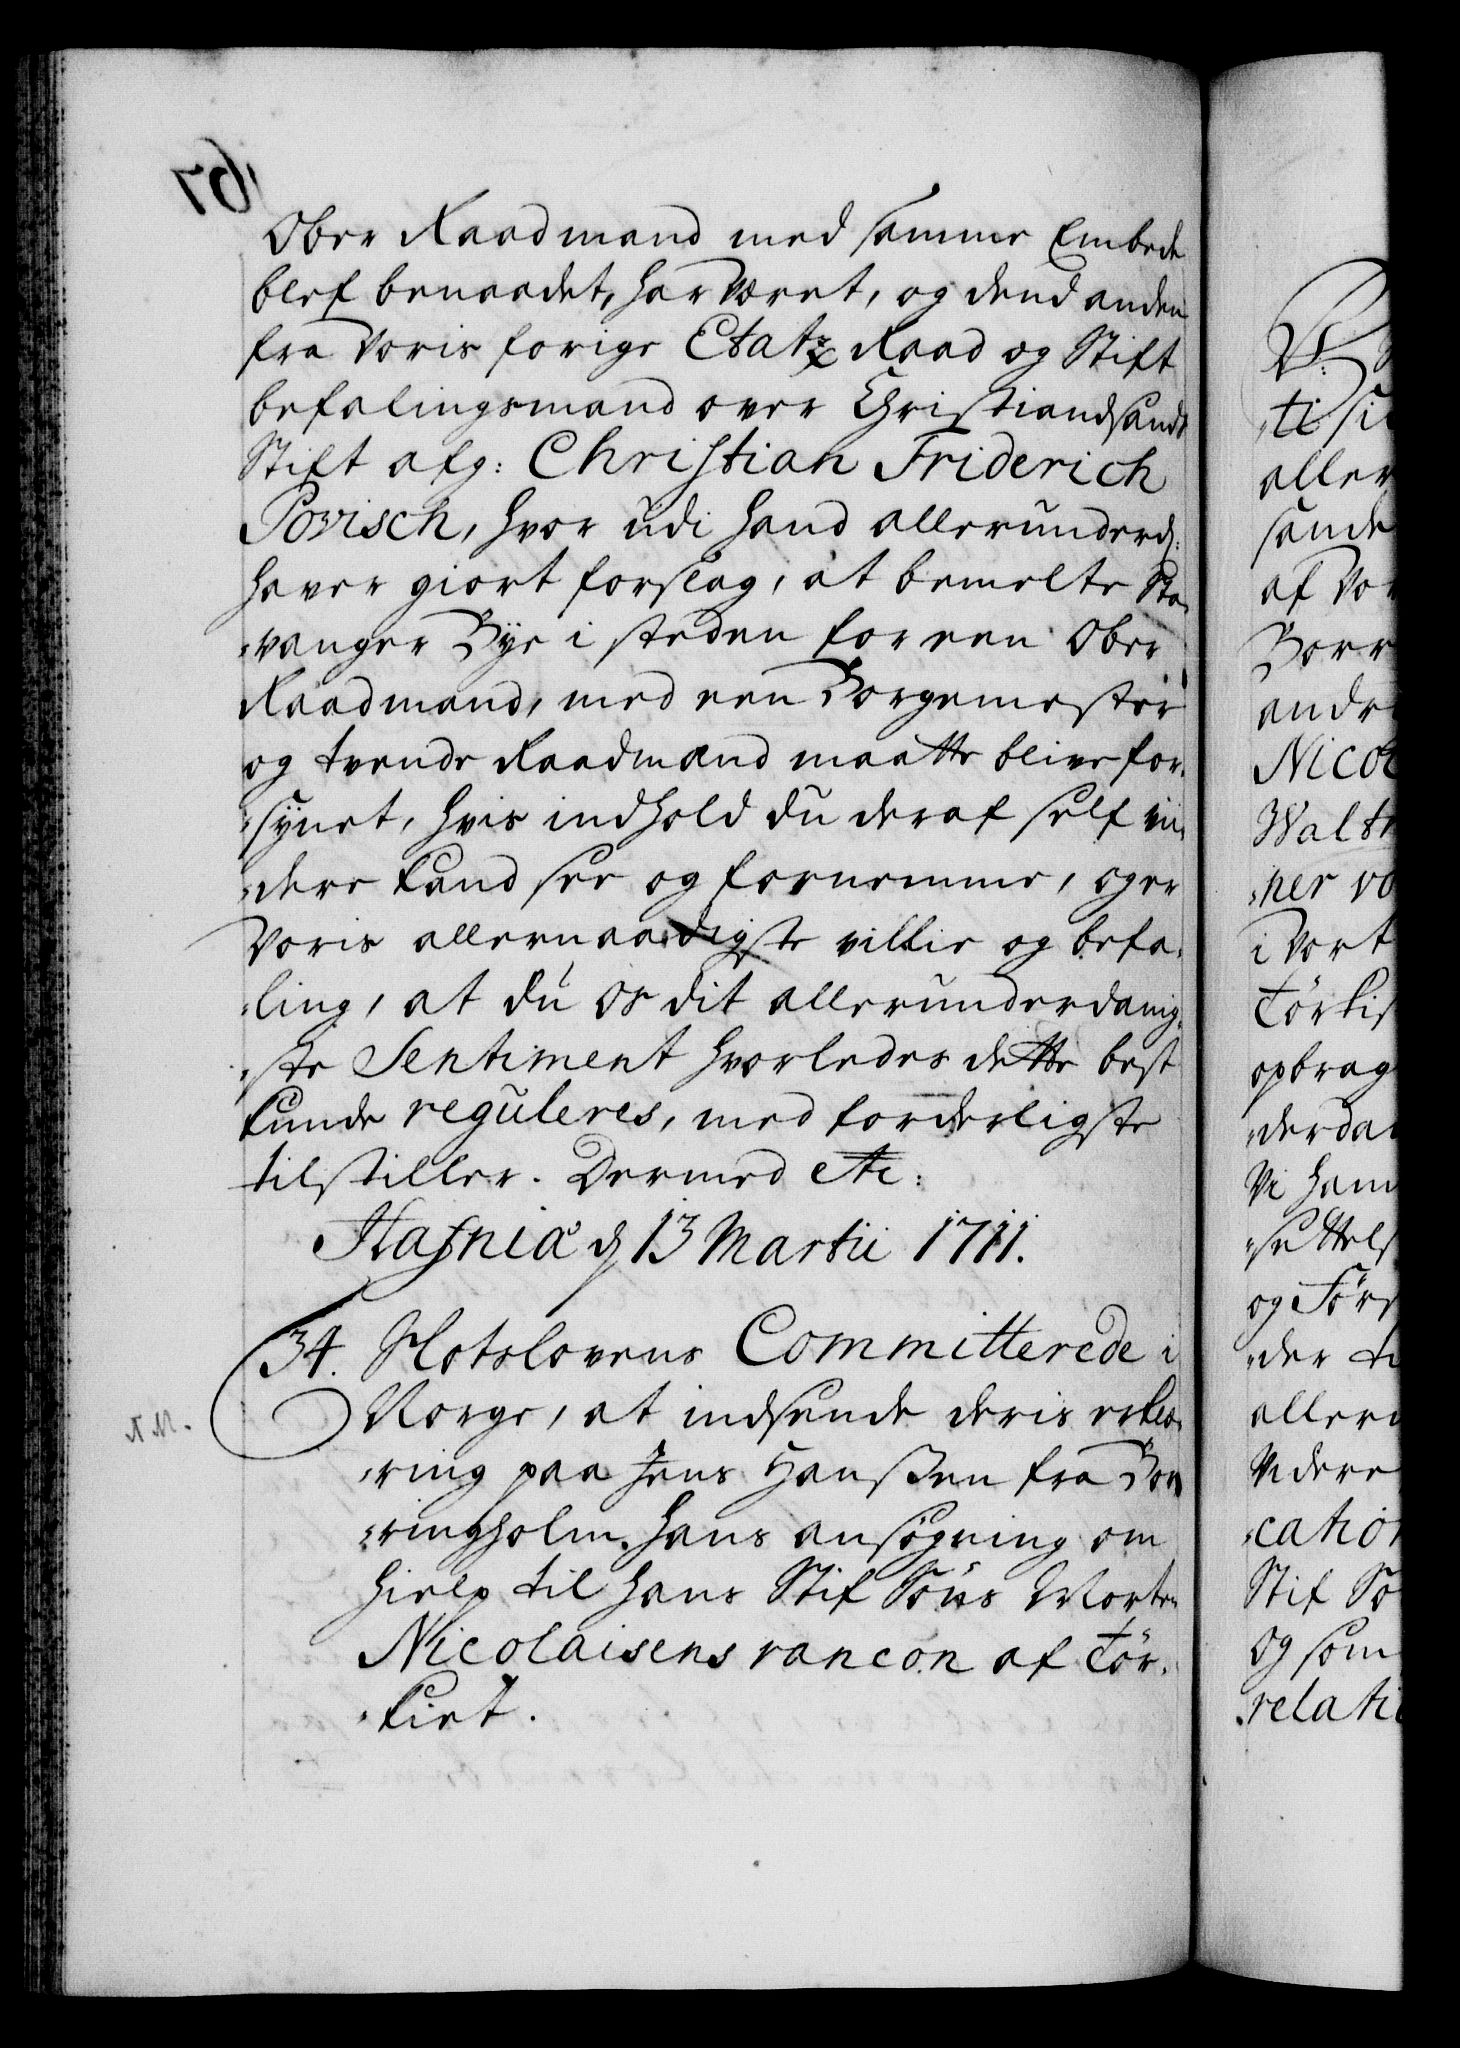 67
Ober Raadmand med samme Embede
blef benaadet, har været, og dend anden
fra Voris forige Etatz Raad og Stift
befalingsmand over Christiandsands
Stift afg: Christian Friderich
Povisch, hvor udi hand allerunderd:
haver giort forslag, at bemelte Sta-
-vanger Bye i steden for een Ober
Raadmand, med een Borgemester
og tvende Raadmænd maatte blive for-
-synet, hvis indhold du deraf self vii-
-dere kand see og fornemme, og er
Voris allernaadigste villie og befa-
-ling, at du os dit allerunderdanig-
-ste Sentiment hvorledes dette best
kunde reguleres, med forderligste
tilstiller. Dermed etc:
Hafniæ d 13 Martii 1711.
34. Slotslovens Committerede i
Norge, at indsende deris erklæ-
-ring paa Jens Hanssen fra Bor
-ringholm hans ansøgning om
hielp til hans Stif Søns Morten
Nicolaisens rancon af Tør-
-kiet.
ti si
aller
sande
af Vor
Borr
andr
Nicol
Walt
-ner vo
i Vort
Tørkis
opbrag
-derda
Vi ham
-settels
og Førs
-der ti
aller
Videre
-cation
Stif Sø
og som
relati